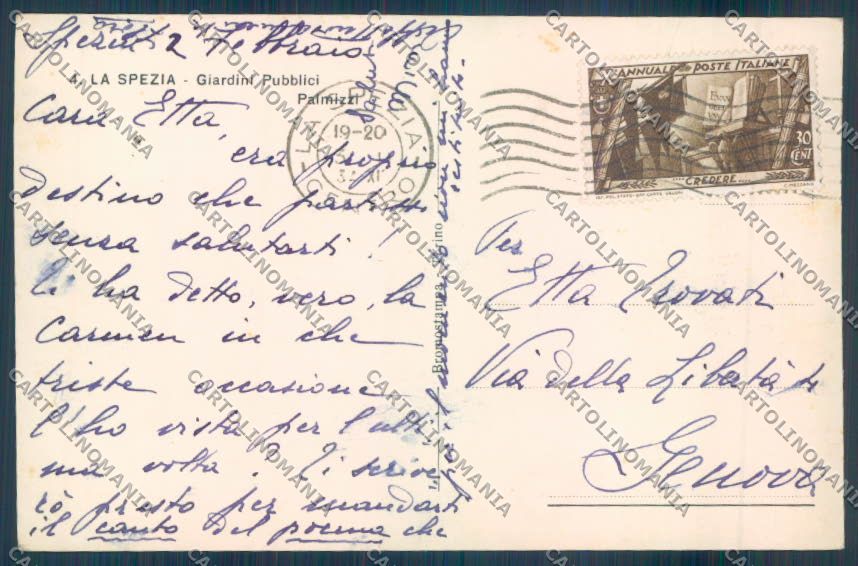 Spezia, 2 Febbraio
4. LA SPEZIA - Giardini Pubblici
Palmizzi
Cara Etta,
era proprio
destino che partissi
senza salutarti!
Ti ha detto, vero, la
Carmen in che
triste occasione
l'ho vista per l'ulti
ma volta? Ti scrive
rò presto per mandarti
il canto del poema che
saluti
LA SPEZIA
19-20
Bromostampa - Torino
ANNUALE POSTE ITALIANE
30
CENT
CREDERE
IST. POL. STATO - OFF. CARTE VALORI
C. MEZZANA
Per
Etta Trovati
Via della Libertà
Genova
CARTOLINOMANIA